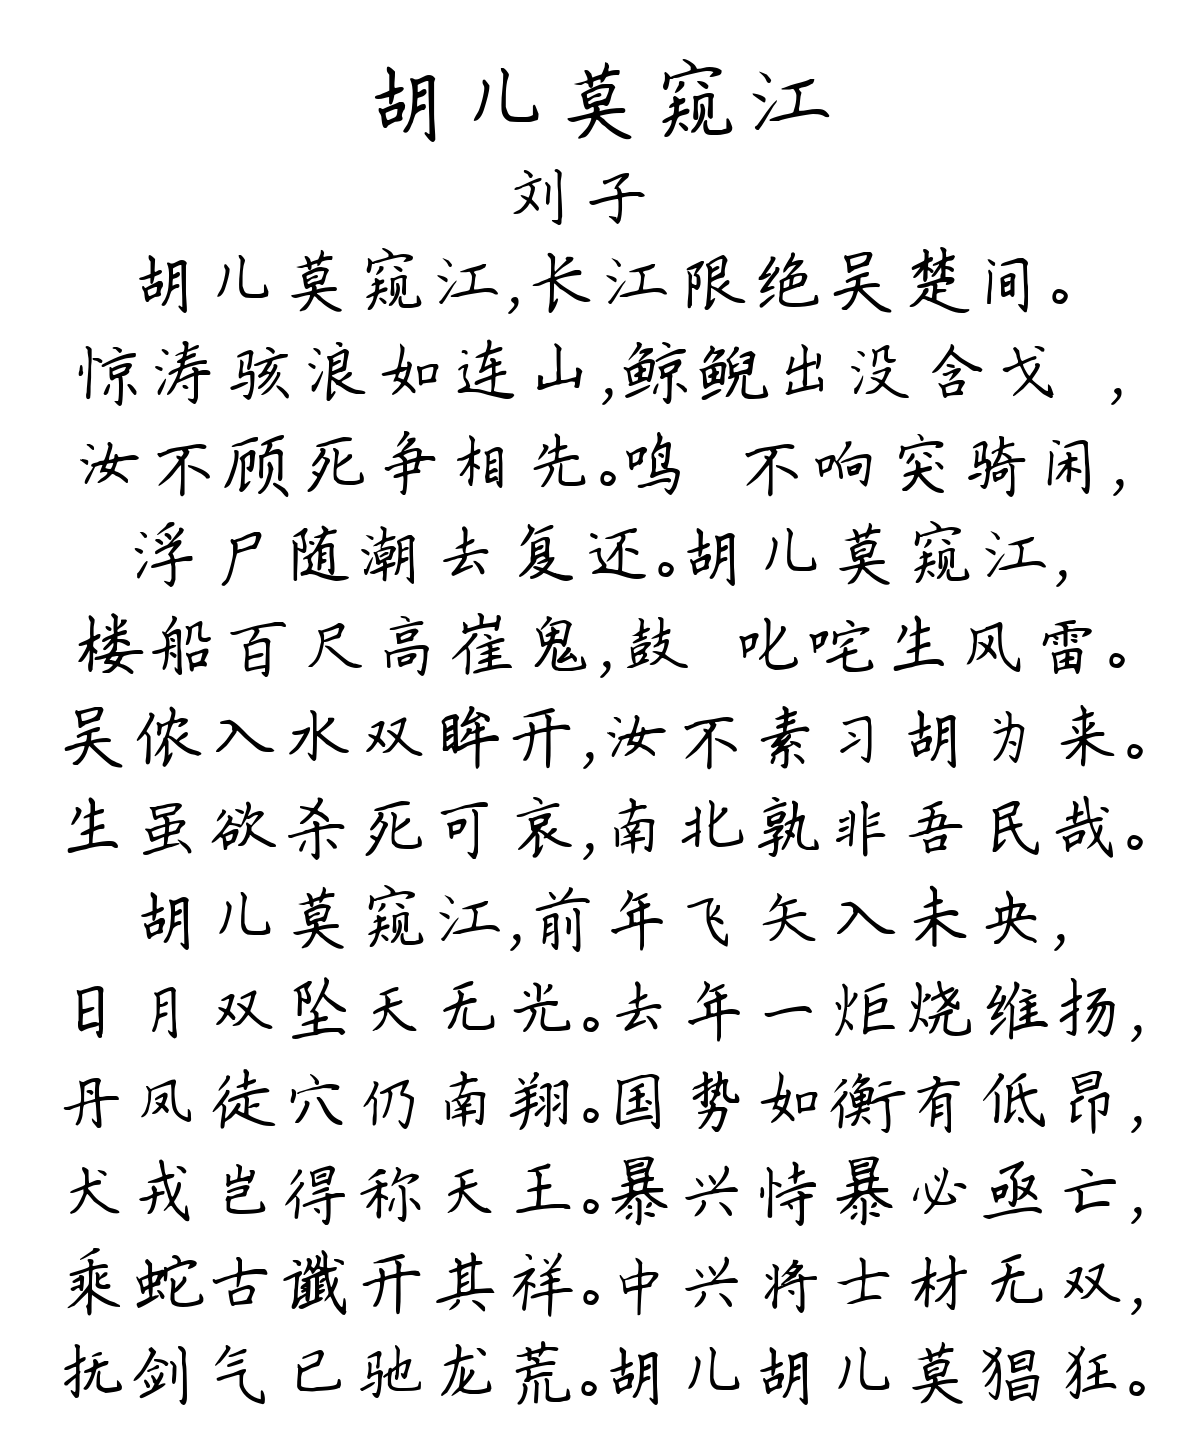 胡儿莫窥江
刘子
胡儿莫窥江,长江限绝吴楚间。
惊涛骇浪如连山,鲸鲵出没含戈 ,
汝不顾死争相先。鸣 不响突骑闲,
浮尸随潮去复还。胡儿莫窥江,
楼船百尺高崔鬼,鼓 叱咤生风雷。
吴侬入水双眸开,汝不素习胡为来。
生虽欲杀死可哀,南北孰非吾民哉。
胡儿莫窥江,前年飞矢入未央,
日月双坠天无光。去年一炬烧维扬,
丹凤徒穴仍南翔。国势如衡有低昂,
犬戎岂得称天王。暴兴恃暴必亟亡,
乘蛇古谶开其祥。中兴将士材无双,
抚剑气已驰龙荒。胡儿胡儿莫猖狂。